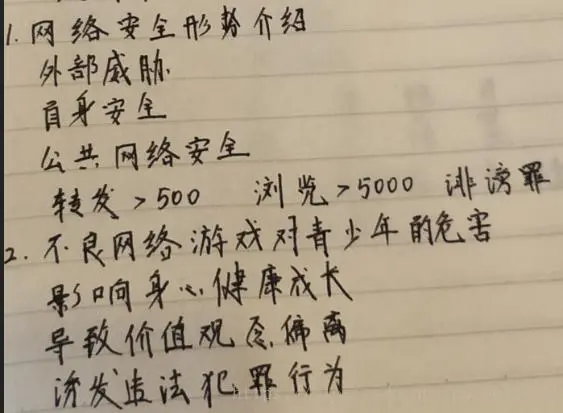 1. 网络安全形势介绍
外部威胁
自身安全
公共网络安全
转发>500 浏览>5000 诽谤罪
2. 不良网络游戏对青少年的危害
影响身心健康成长
导致价值观念偏离
诱发违法犯罪行为